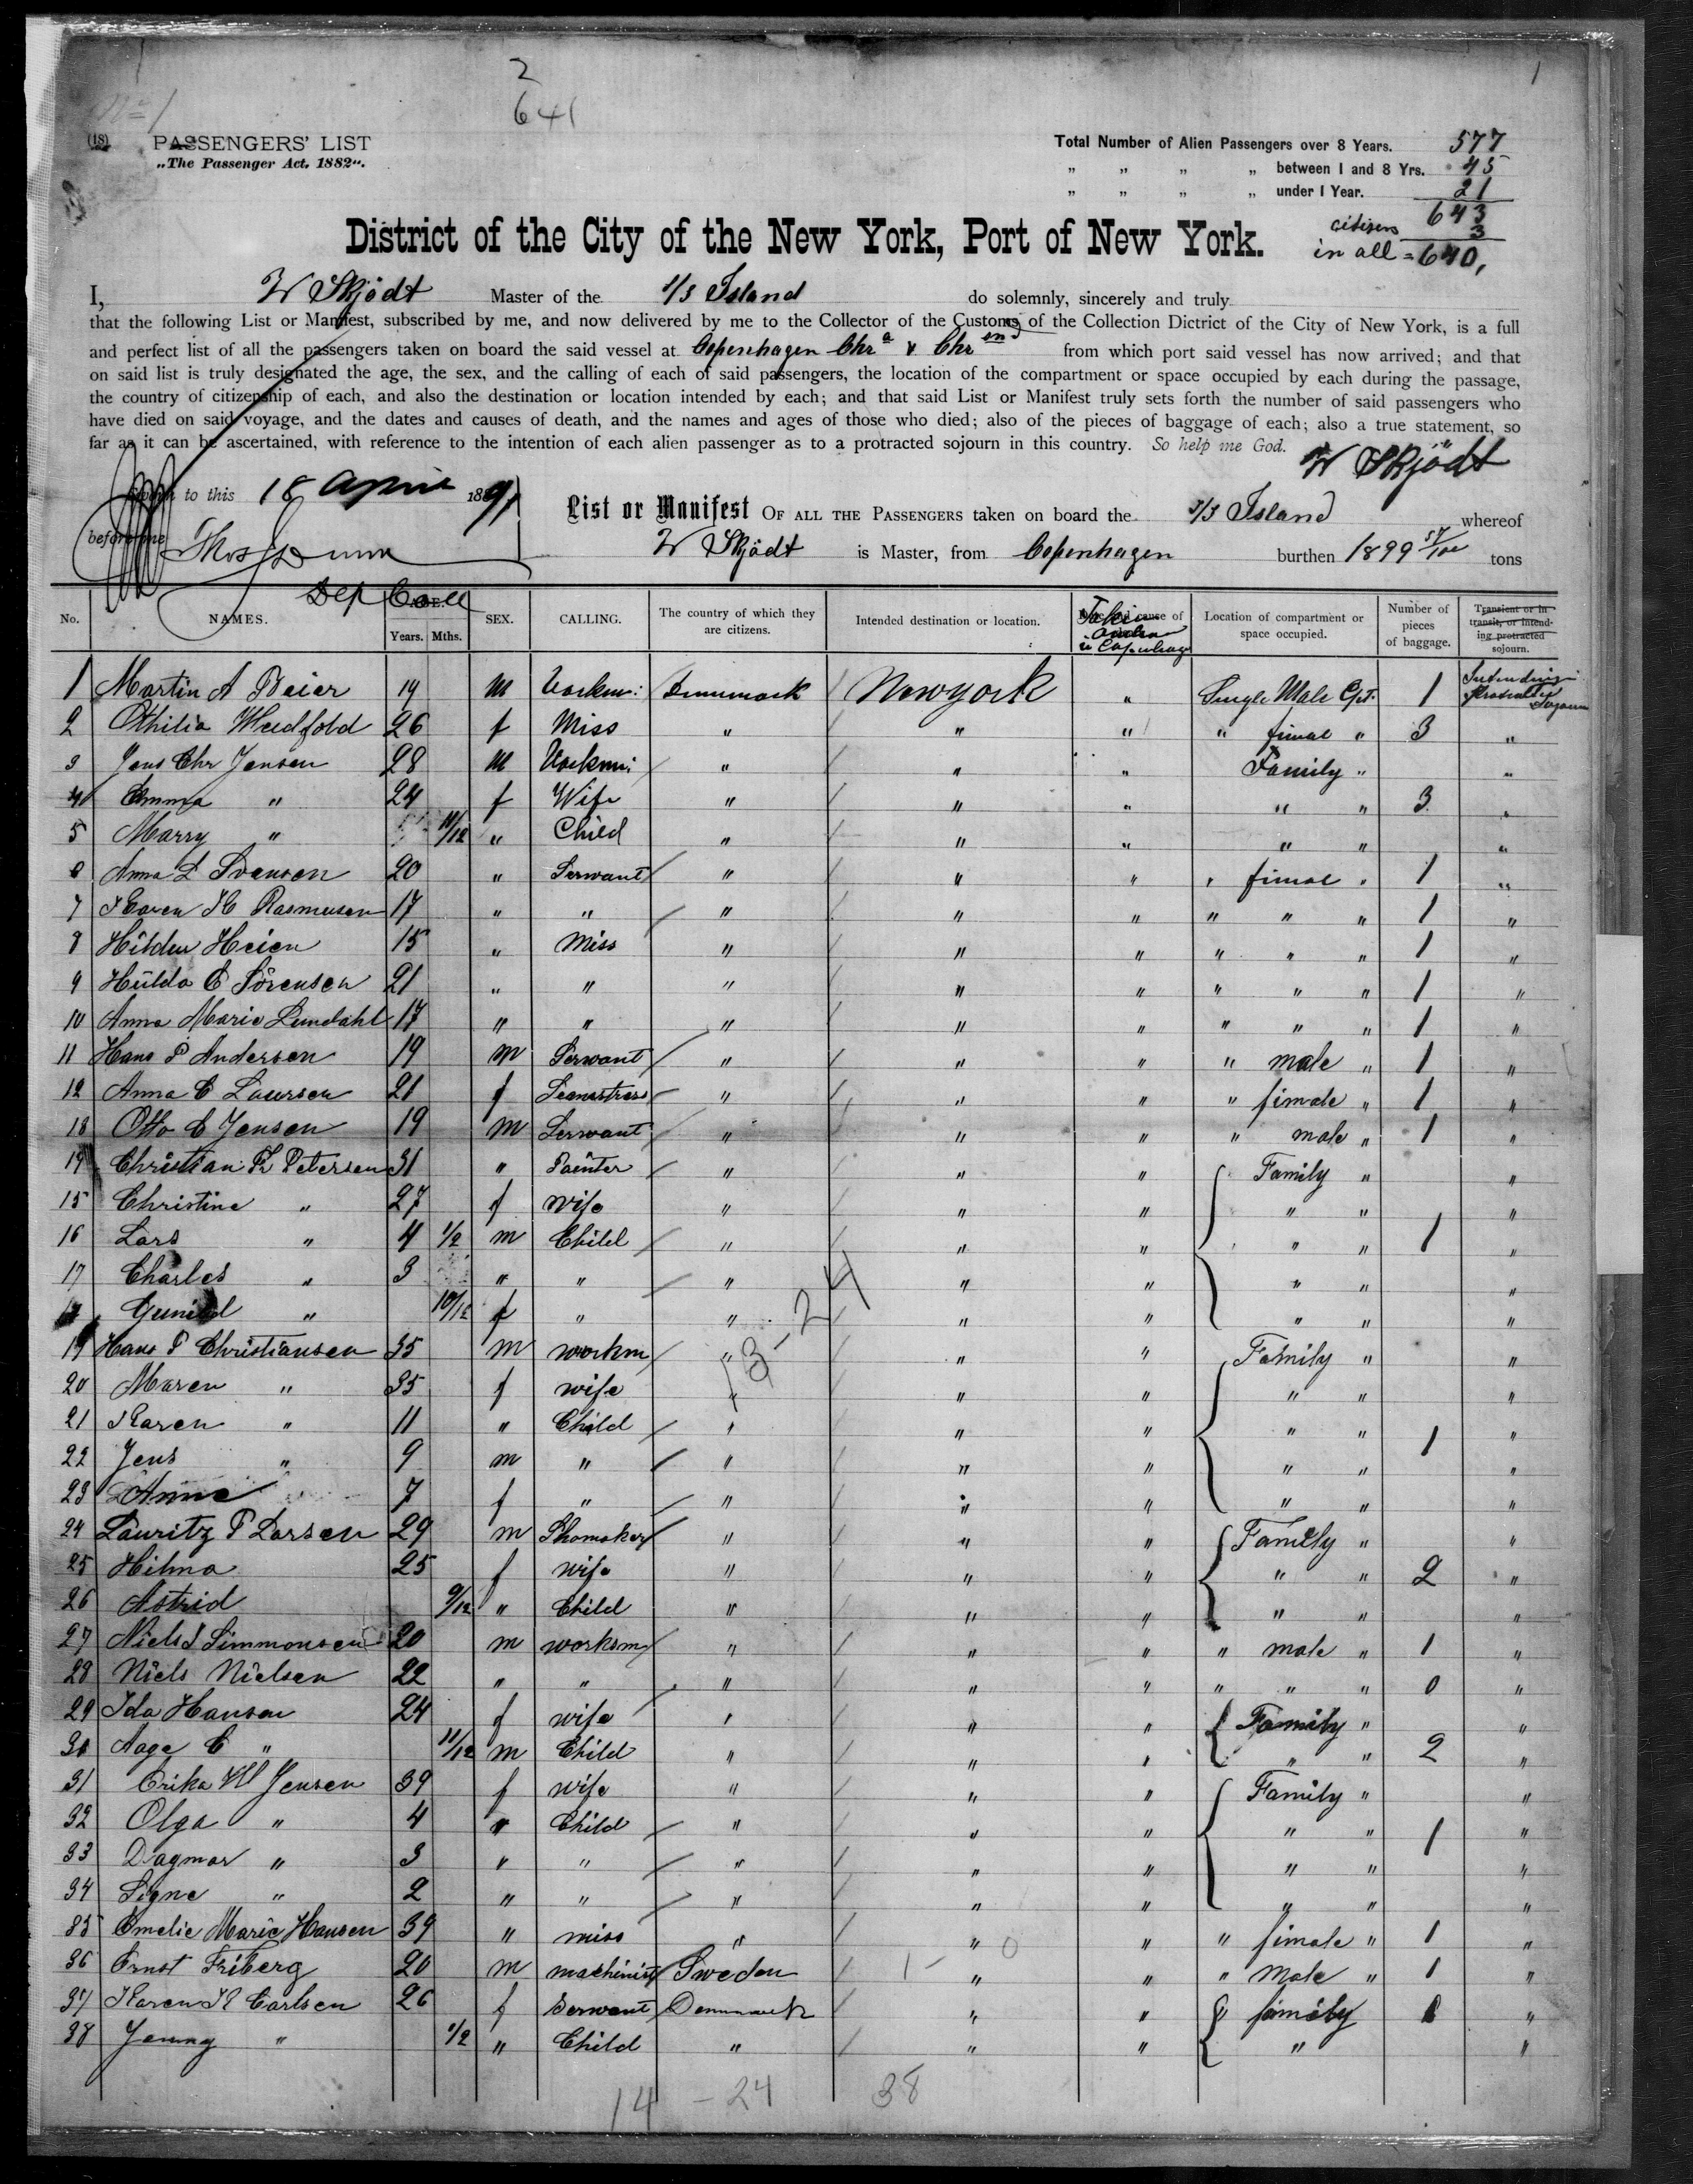 2
641
1
(18) PASSENGERS' LIST
„The Passenger Act, 1882“.
Total Number of Alien Passengers over 8 Years. 577
„ „ „ „ between 1 and 8 Yrs. 45
„ „ „ „ under 1 Year. 21
643
citizens 3
in all = 640,
District of the City of the New York, Port of New York.
I, W Skjödt Master of the s/s Island do solemnly, sincerely and truly
that the following List or Manifest, subscribed by me, and now delivered by me to the Collector of the Customs of the Collection Dictrict of the City of New York, is a full
and perfect list of all the passengers taken on board the said vessel at Copenhagen Chra & Chr from which port said vessel has now arrived; and that
on said list is truly designated the age, the sex, and the calling of each of said passengers, the location of the compartment or space occupied by each during the passage,
the country of citizenship of each, and also the destination or location intended by each; and that said List or Manifest truly sets forth the number of said passengers who
have died on said voyage, and the dates and causes of death, and the names and ages of those who died; also of the pieces of baggage of each; also a true statement, so
far as it can be ascertained, with reference to the intention of each alien passenger as to a protracted sojourn in this country. So help me God.
W Skjödt
to this 18 April 1891
before me
List or Manifest OF ALL THE PASSENGERS taken on board the s/s Island whereof
W Skjödt is Master, from Copenhagen burthen 1899 57/100 tons
Dep Coll
No. NAMES. AGE. Years. Mths. SEX. CALLING. The country of which they are citizens. Intended destination or location. cause of Location of compartment or space occupied. Number of pieces of baggage. Transient or in transit, or intending protracted sojourn.
1 Martin A Beier 19 m Denmark New York " Single Male Cpt. 1 Intending
2 Othilia 26 f Miss " " " " fimal " 3 "
3 Jens Chr Jensen 28 m " " " Family " "
4 Emma " 24 f Wife " " " " " 3 "
5 Marry " 11/12 " Child " " " " " "
6 Anna L Svensen 20 " Servant " " " " fimal " 1 "
7 Karen K Rasmusen 17 " " " " " " " " 1 "
8 Heien 15 " Miss " " " " " " 1 "
9 Hulda C Sörensen 21 " " " " " " " " 1 "
10 Anna Marie Lundahl 17 " " " " " " " " 1 "
11 Hans P Andersen 19 m Servant " " " " male " 1 "
12 Anna C Laursen 21 f Seamstress " " " " fimale " 1 "
13 Otto C Jensen 19 m Servant " " " " male " 1 "
14 Christian Petersen 31 " Painter " " " Family " "
15 Christine " 27 f wife " " " " " "
16 Lars " 4 1/2 m Child " " " " " 1 "
17 Charles " 3 " " " " " " " "
" 10/12 f " " " " " " "
19 Hans P Christiansen 35 m workm " " " Family " "
20 Maren " 35 f wife " " " " " "
21 Karen " 11 " Child " " " " " "
22 Jens " 9 m " " " " " " 1 "
23 Anna 7 f " " " " " " "
24 Lauritz P Larsen 29 m Shomaker " " " Family " "
25 Hilma 25 f wife " " " " " 2 "
26 Astrid 9/12 " Child " " " " " "
27 Niels S Simmonsen 20 m worksm " " " " male " 1 "
28 Niels Nielsen 22 " " " " " " " " 0 "
29 Ida Hansen 24 f wife " " " Family " "
30 Aage C " 11/12 m Child " " " " " 2 "
31 Erika W Jensen 39 f wife " " " Family " "
32 Olga " 4 " Child " " " " " 1 "
33 Dagmar " 3 " " " " " " " "
34 Signe " 2 " " " " " " " "
35 Emelie Marie Hansen 39 " miss " " " " fimale " 1 "
36 Ernst Friberg 20 m machinist Sweden " " " Male " 1 "
37 Karen K Carlsen 26 f servant Denmark " " family 1 "
38 Jenny " 1/2 " Child " " " " "
14 - 24 38